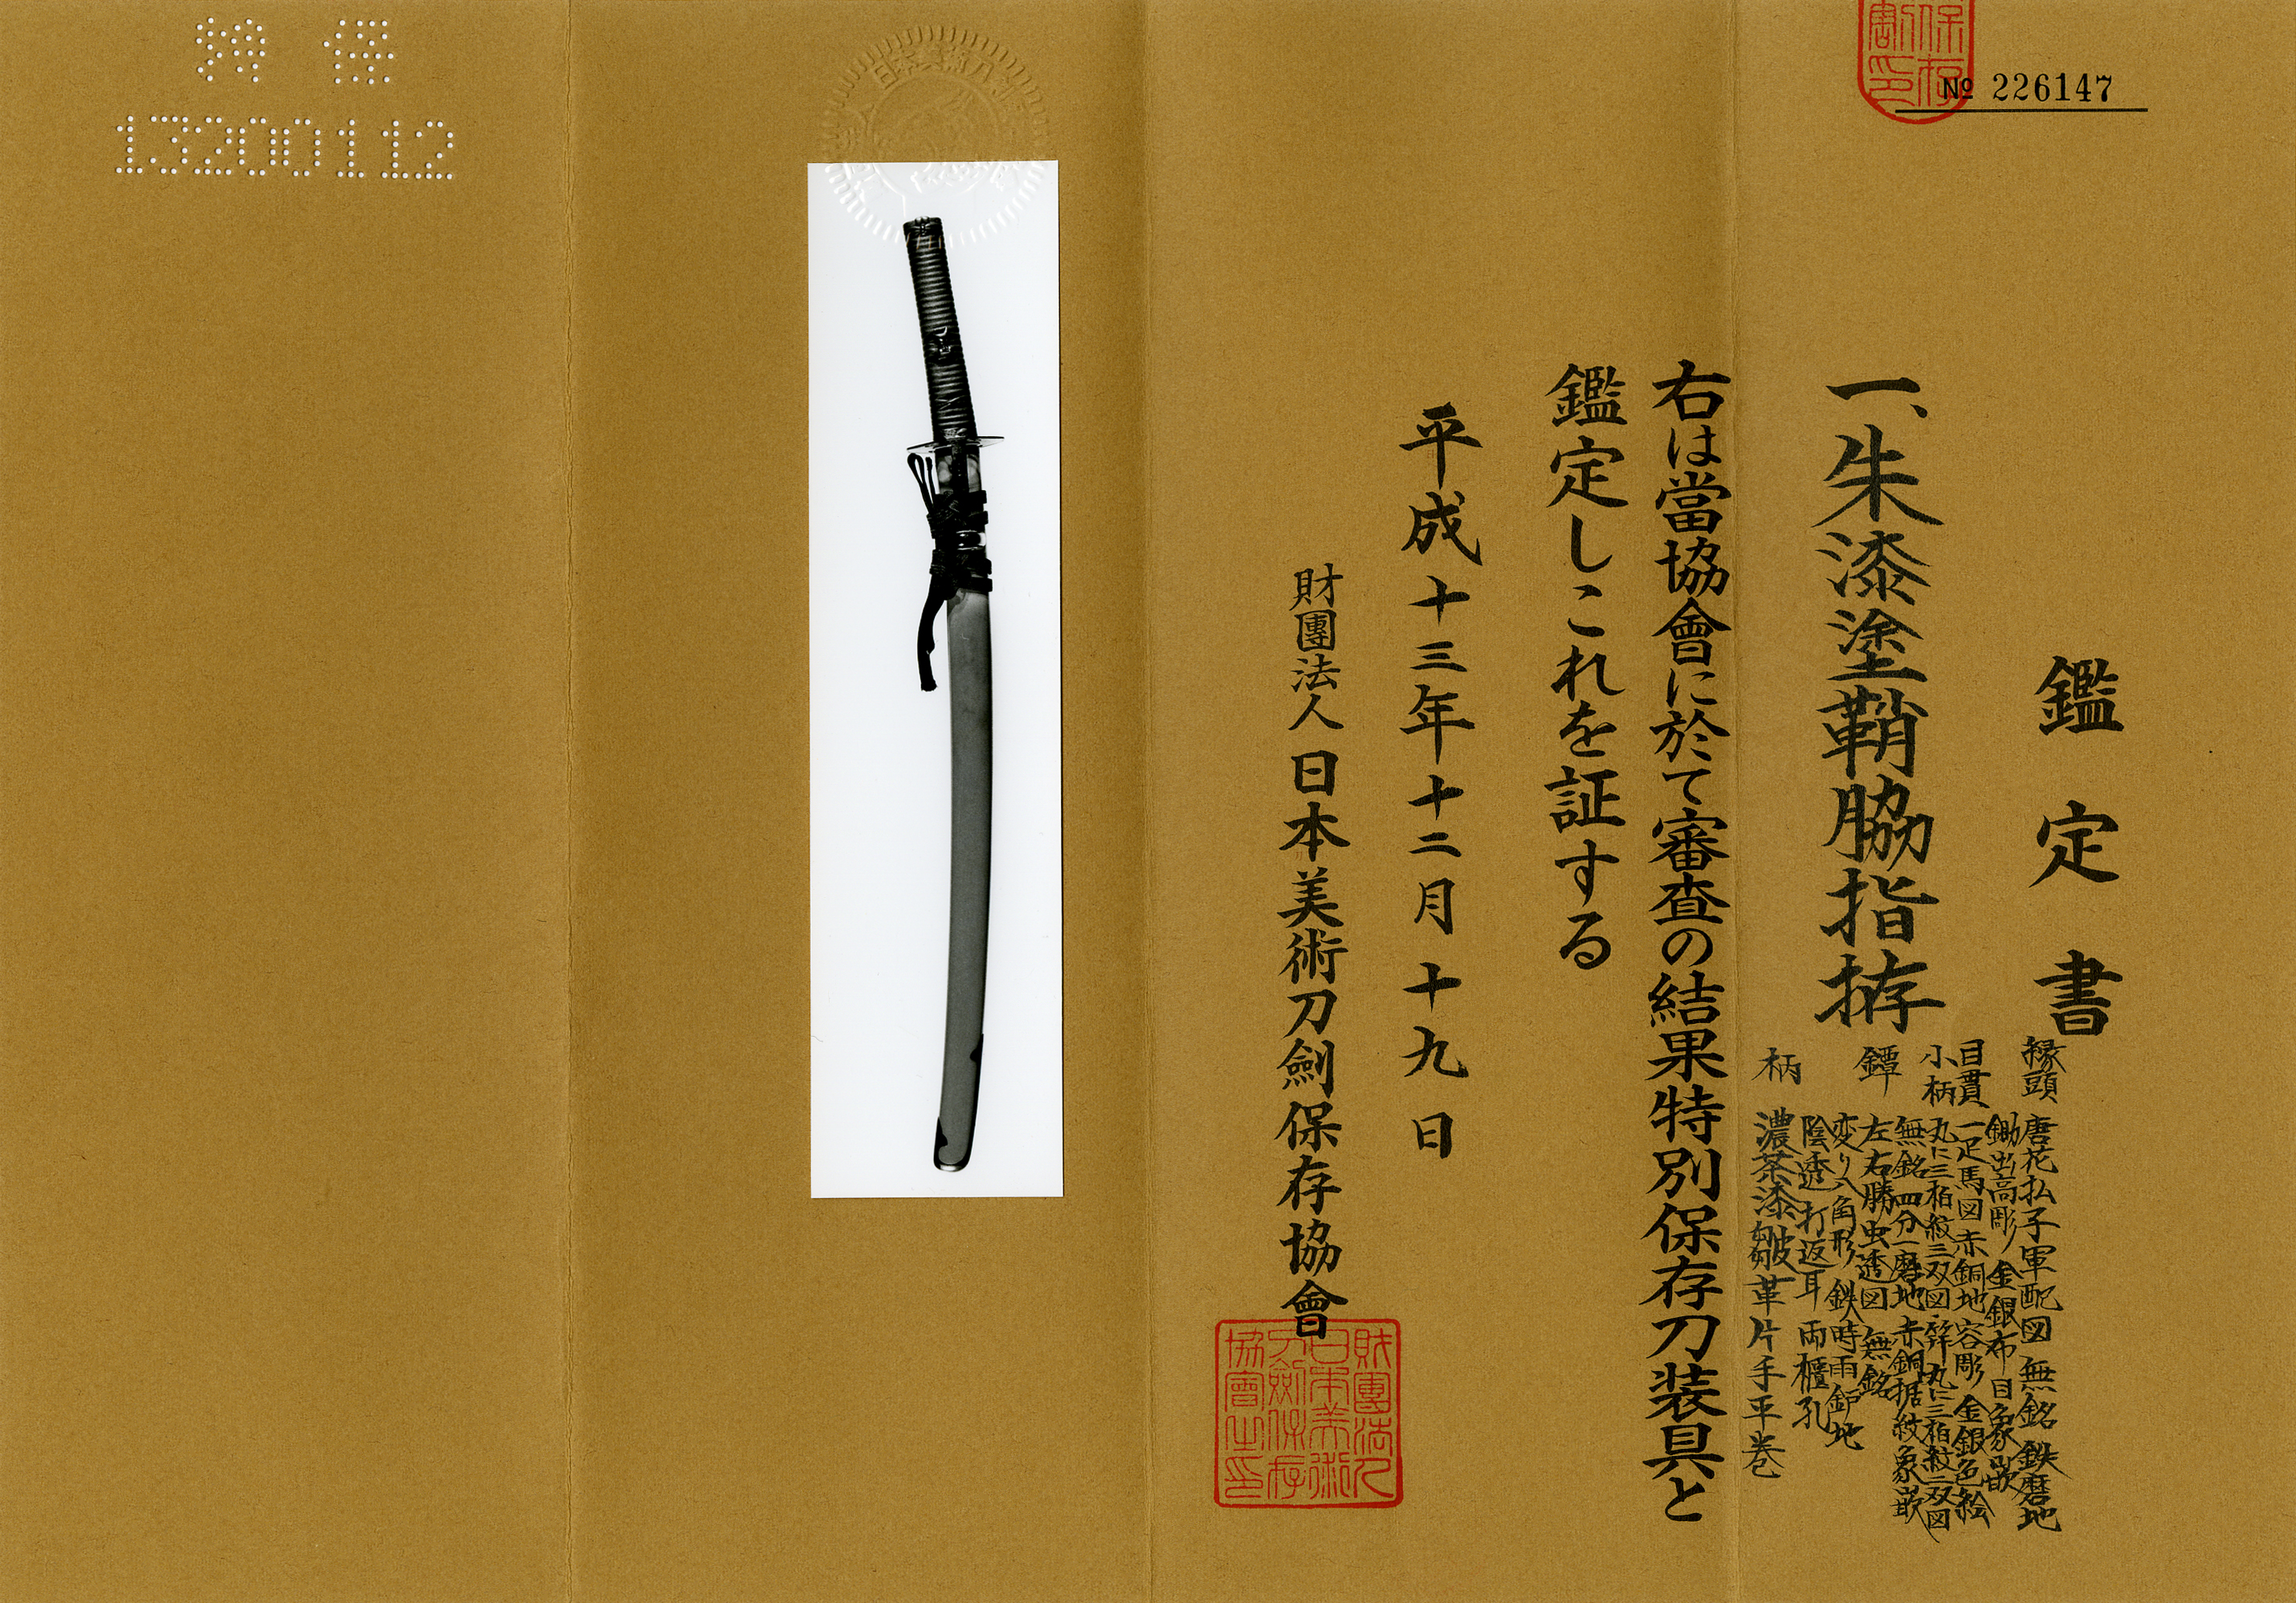 № 226147
鑑定書
一、朱漆塗鞘脇指拵
縁頭 唐花払子軍配図 無銘 鉄磨地
鋤出高彫 金銀布目象嵌
目貫 一疋馬図 赤銅地 容彫 金銀色絵
小柄 丸に三柏紋三双図 笄 丸に三柏紋二双図
無銘 四分一磨地 赤銅据紋象嵌
鐔 左右勝虫透図 無銘
変り八角形 鉄時雨鑢地
陰透 打返耳 両櫃孔
柄 濃茶漆皺革片手平巻
右は當協會に於て審査の結果特別保存刀装具と
鑑定しこれを証する
平成十三年十二月十九日
財團法人日本美術刀劍保存協會
財團法人
日本美術
刀劍保存
協會之印
保存
13200112